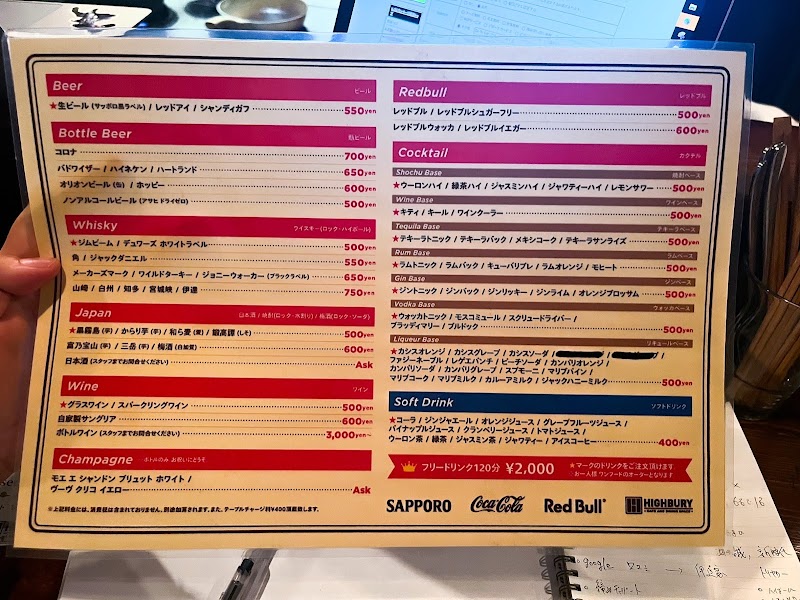 Beer ビール
★生ビール (サッポロ黒ラベル) / レッドアイ / シャンディガフ 550yen
Bottle Beer 瓶ビール
コロナ 700yen
バドワイザー / ハイネケン / ハートランド 650yen
オリオンビール (缶) / ホッピー 600yen
ノンアルコールビール (アサヒ ドライゼロ) 500yen
Whisky ウイスキー(ロック・ハイボール)
★ジムビーム / デュワーズ ホワイトラベル 500yen
角 / ジャックダニエル 550yen
メーカーズマーク / ワイルドターキー / ジョニーウォーカー (ブラックラベル) 650yen
山崎 / 白州 / 知多 / 宮城峡 / 伊達 750yen
Japan 日本酒 / 焼酎(ロック・水割り) / 梅酒(ロック・ソーダ)
★黒霧島 (芋) / からり芋 (芋) / 和ら麦 (麦) / 鍛高譚 (しそ) 500yen
富乃宝山 (芋) / 三岳 (芋) / 梅酒 (白加賀) 600yen
日本酒 (スタッフまでお問合せください) Ask
Wine ワイン
★グラスワイン / スパークリングワイン 500yen
自家製サングリア 600yen
ボトルワイン (スタッフまでお問合せください) 3,000yen~
Champagne ボトルのみ お祝いにどうぞ
モエ エ シャンドン ブリュット ホワイト /
ヴーヴ クリコ イエロー Ask
※上記料金には、消費税は含まれておりません。別途加算されます。また、テーブルチャージ料¥400頂戴致します。
Redbull レッドブル
レッドブル / レッドブルシュガーフリー 500yen
レッドブルウォッカ / レッドブルイエガー 600yen
Cocktail カクテル
Shochu Base 焼酎ベース
★ウーロンハイ / 緑茶ハイ / ジャスミンハイ / ジャワティーハイ / レモンサワー 500yen
Wine Base ワインベース
★キティ / キール / ワインクーラー 500yen
Tequila Base テキーラベース
★テキーラトニック / テキーラバック / メキシコーク / テキーラサンライズ 500yen
Rum Base ラムベース
★ラムトニック / ラムバック / キューバリブレ / ラムオレンジ / モヒート 500yen
Gin Base ジンベース
★ジントニック / ジンバック / ジンリッキー / ジンライム / オレンジブロッサム 500yen
Vodka Base ウォッカベース
★ウォッカトニック / モスコミュール / スクリュードライバー /
ブラッディマリー / ブルドック 500yen
Liqueur Base リキュールベース
★カシスオレンジ / カシスグレープ / カシスソーダ /
ファジーネーブル / レゲエパンチ / ピーチソーダ / カンパリオレンジ /
カンパリソーダ / カンパリグレープ / スプモーニ / マリブパイン /
マリブコーク / マリブミルク / カルーアミルク / ジャックハニーミルク 500yen
Soft Drink ソフトドリンク
★コーラ / ジンジャエール / オレンジジュース / グレープフルーツジュース /
パイナップルジュース / クランベリージュース / トマトジュース /
ウーロン茶 / 緑茶 / ジャスミン茶 / ジャワティー / アイスコーヒー 400yen
フリードリンク120分 ¥2,000
★マークのドリンクをご注文頂けます
お一人様 ワンフードのオーダーとなります
SAPPORO Coca-Cola Red Bull HIGHBURY
google